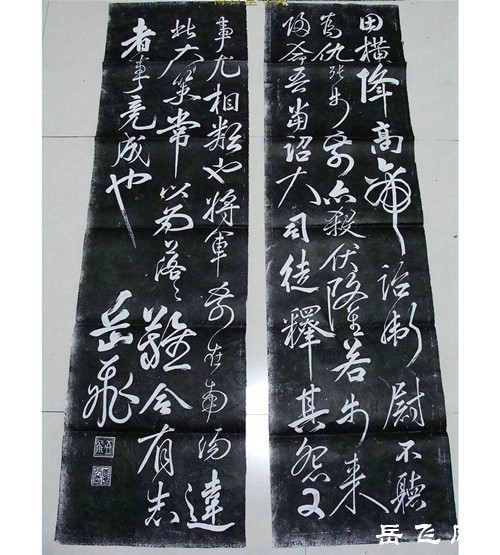 田橫降高帝詔衛尉不聽
為仇張步前亦殺伏隆若步來
歸命吾當詔大司徒釋其怨又
事尤相類也將軍前在南陽建
此大策常以為落〻難合有志
者事竟成也
岳飛
岳飞